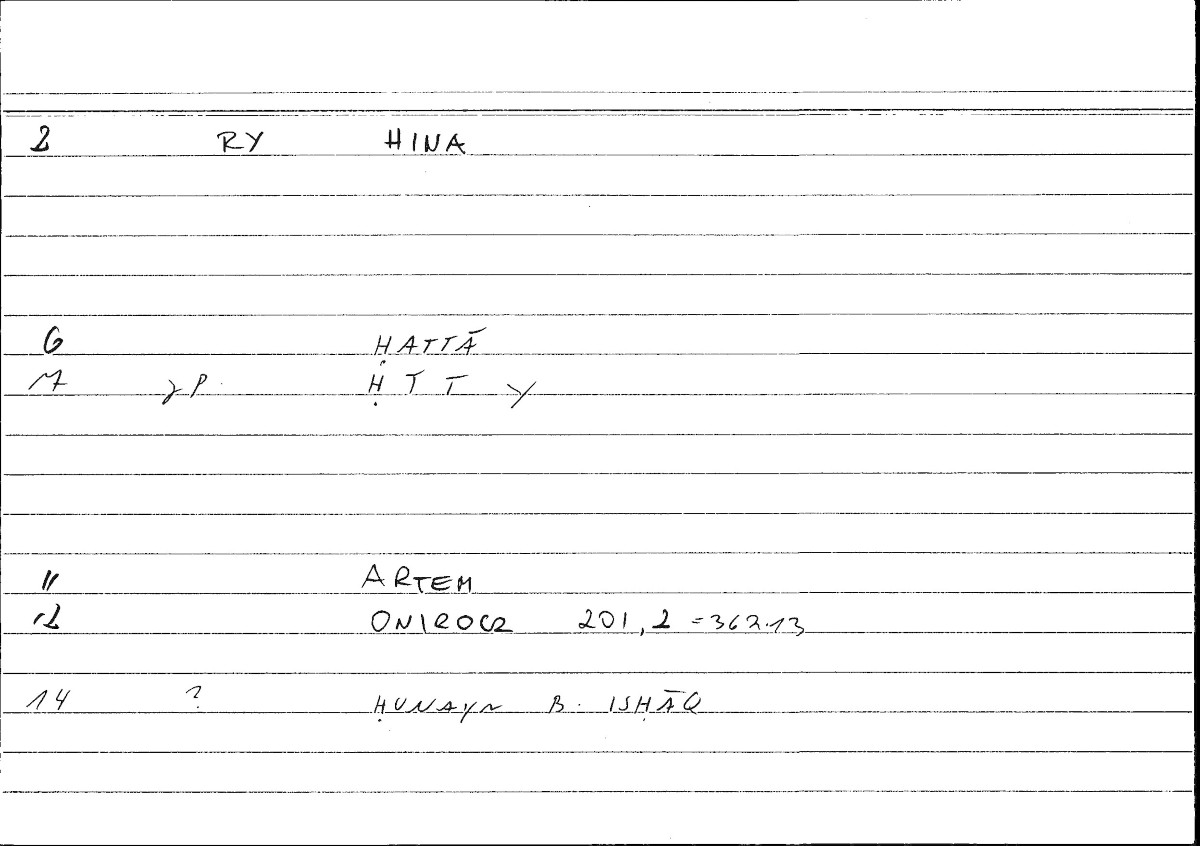 2 RY HINA
6 ḤATTĀ
17 γP ḤTTY
11 ARTEM
12 ONIROCR 201,2 = 362.13
14 ? ḤUNAYN B. ISḤĀQ